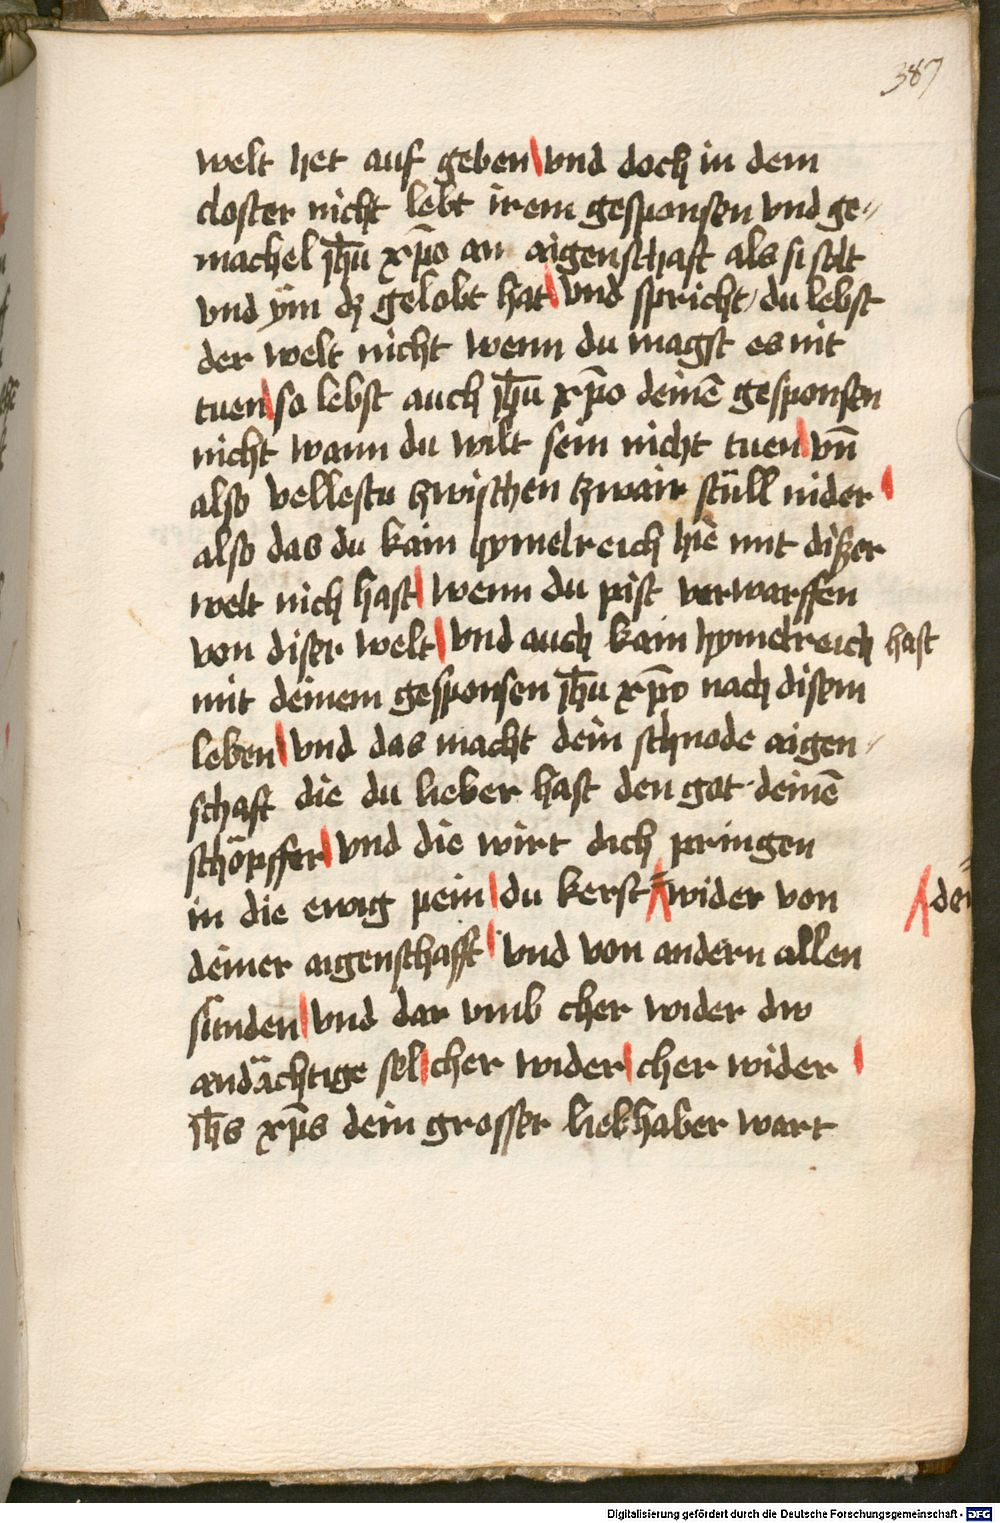 387
welt het auf geben vnd doch in dem
closter nicht lebt irem gesponsen vnd ge⸗
machel ih̄u xp̄o an aigenschaft als si solt
vnd ym dz gelobt hat vnd spricht / du lebst
der welt nicht wenn du magst es nit
tuen so lebst auch ih̄u xp̄o deinē gesponsen
nicht wann du wilt sein nicht tuen vn̄
also vellestu tzwischen tzwair stüll nider
also das du kain hymelreich hie mit diser
welt nich hast wenn du pist verwarffen
von diser welt vnd auch kain hymelreich hast
mit deinem gesponsen ih̄u xp̄o nach disem
leben vnd das macht dein schnode aigen⸗
schaft die du lieber hast den got deinē
schöpffer vnd die wirt dich pringen
in die ewig pein du kerst wider von
dei
deiner aigenschafft vnd von andern allen
sunden vnd dar vmb cher wider dw
andächtige sel cher wider cher wider
ih̄s xp̄s dein grosser liebhaber wart
Digitalisierung gefördert durch die Deutsche Forschungsgemeinschaft - DFG